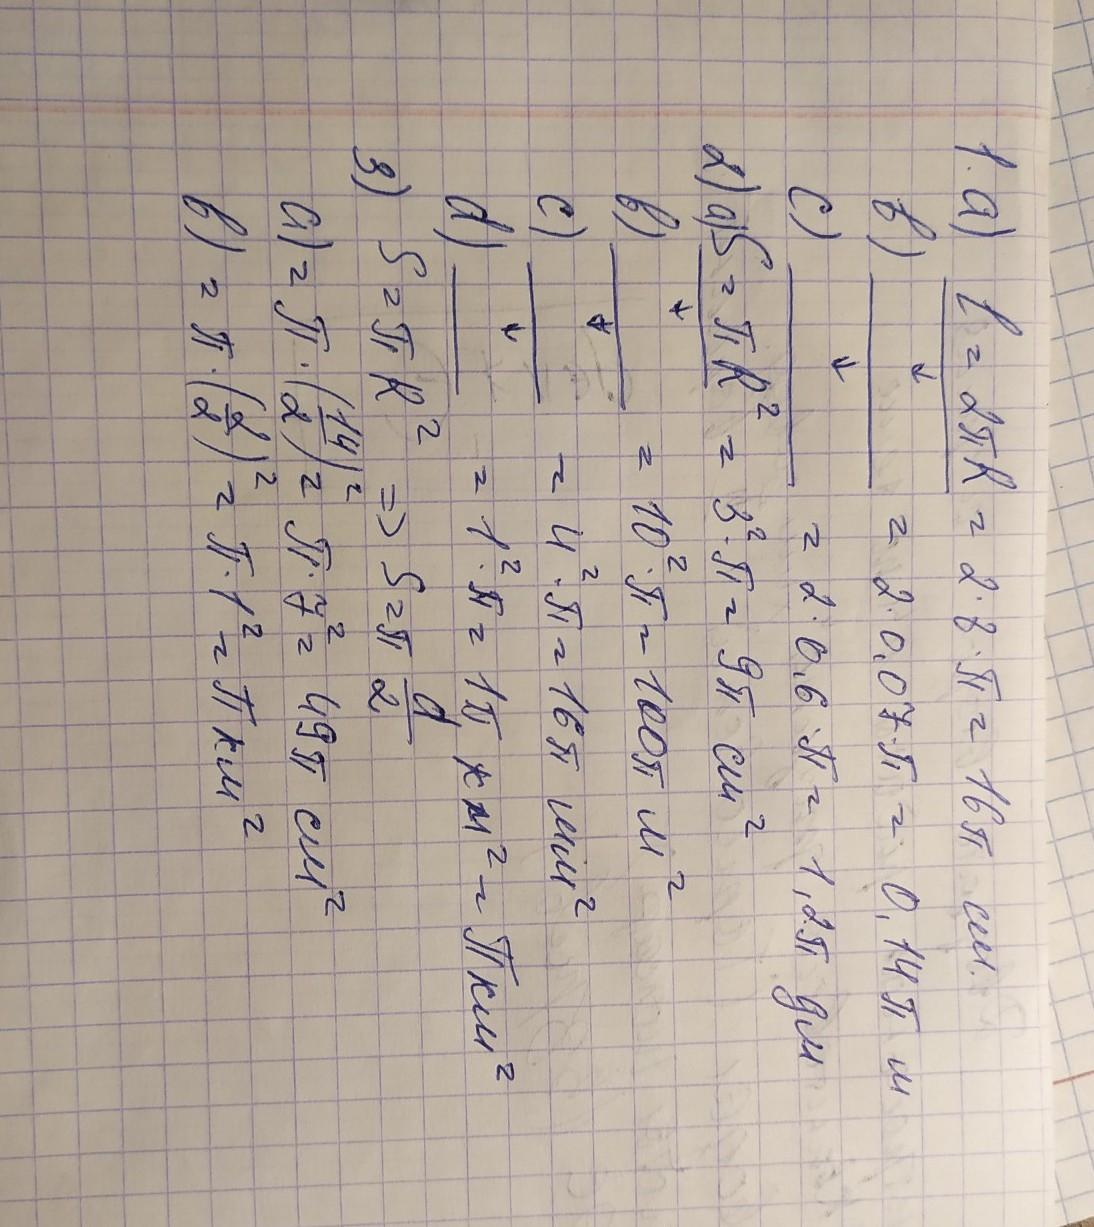 1. a) l = 2πR = 2·8·π = 16π см.
b) ↓ = 2·0,07π = 0,14π м
c) ↓ = 2·0,6·π = 1,2π дм
2) a) S = πR² = 3²·π = 9π см²
b) ↓ = 10²·π = 100π м²
c) ↓ = 4²·π = 16π мм²
d) ↓ = 1²·π = 1π км² = π км²
3) S = πR² => S = π d/2
a) = π·(14/2)² = π·7² = 49π см²
b) = π·(2/2)² = π·1² = π км²